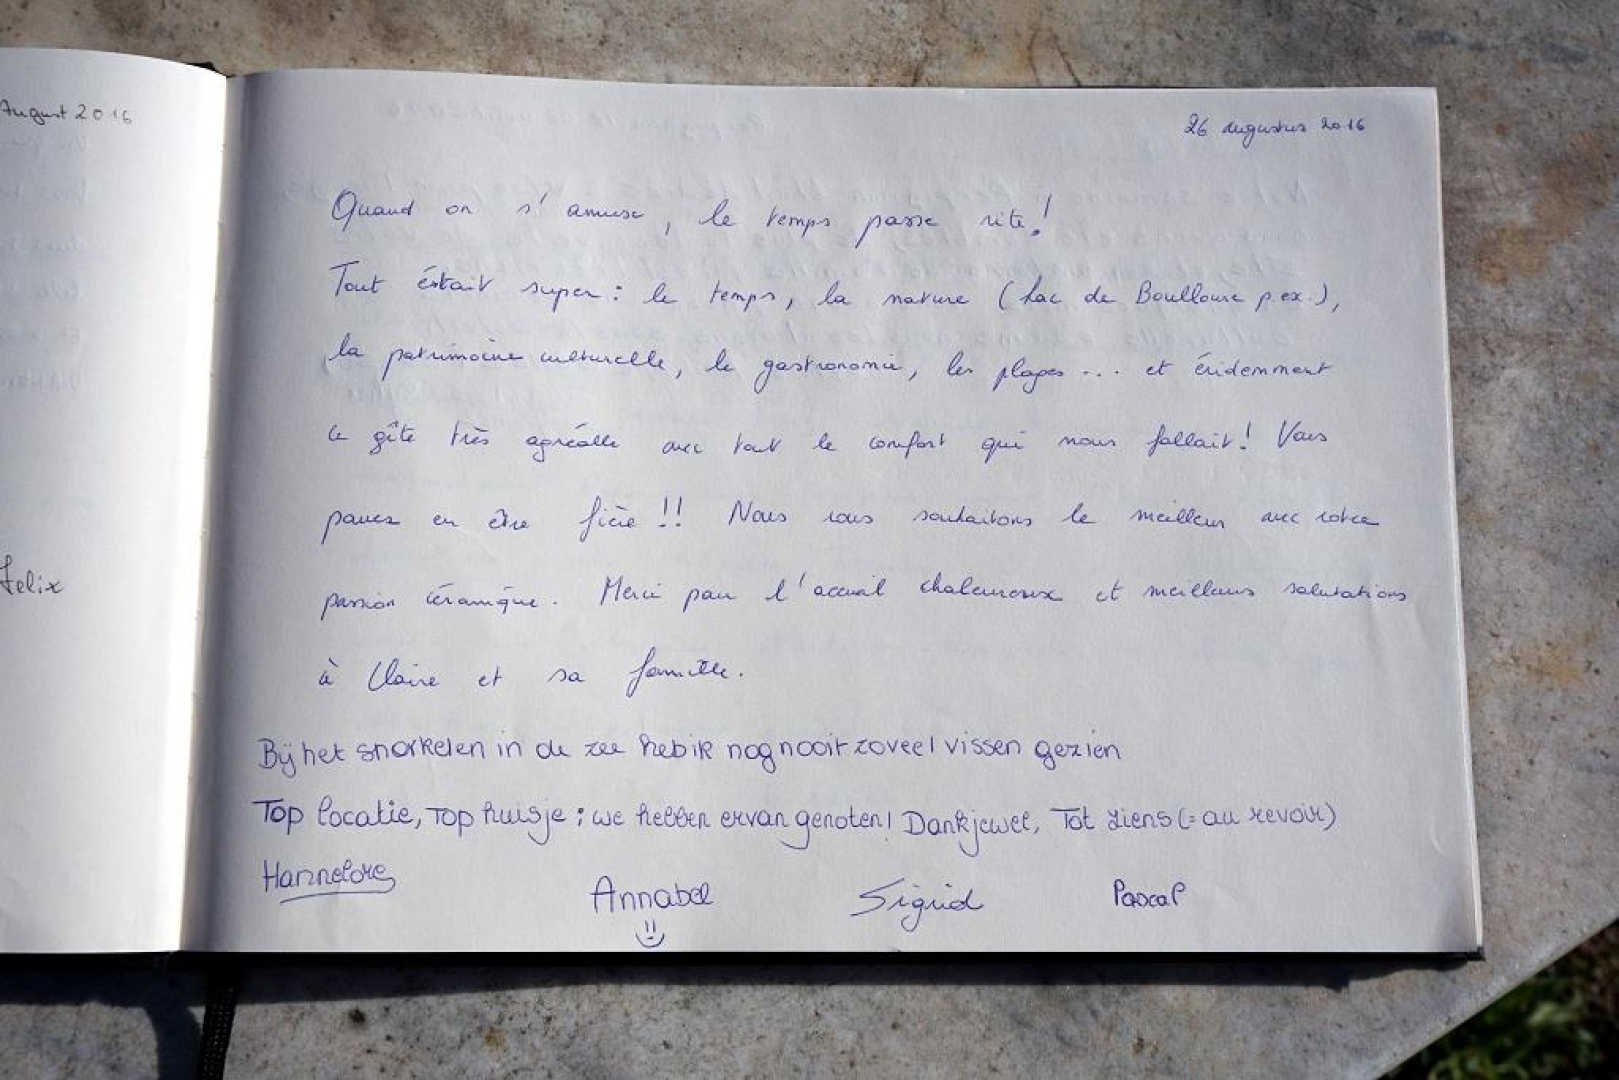 August 2016
Felix
26 augustus 2016
Quand on s'amuse, le temps passe vite!
Tout était super: le temps, la nature (Lac de Boulloure p.ex.),
la patrimoine culturelle, la gastronomie, les plages ... et évidemment
le gîte très agréable avec tout le confort qui nous fallait! Vous
pouvez en être fière!! Nous vous souhaitons le meilleur avec votre
passion céramique. Merci pour l'accueil chaleureux et meilleurs salutations
à Claire et sa famille.
Bij het snorkelen in de zee heb ik nog nooit zoveel vissen gezien
Top locatie, Top huisje; we hebben ervan genoten! Dankjewel, Tot ziens (= au revoir)
Hannelore
Annabel
Sigrid
Pascal